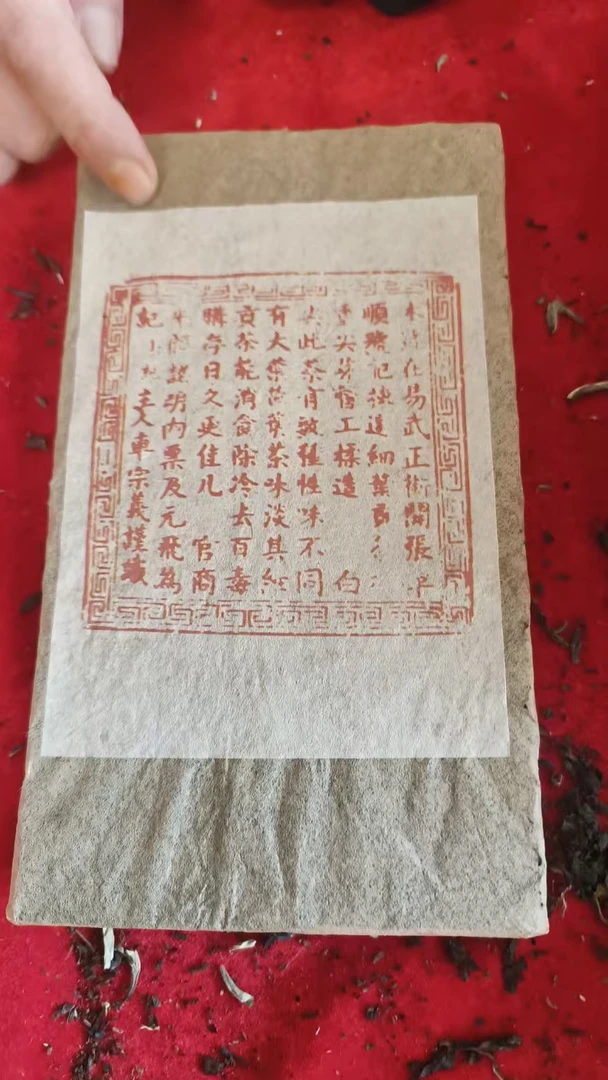 在易武正街開張
順號記揀造細葉
尖芽官工揉造 白
此茶有數種性味不同
有大葉葉茶味淡其
貢茶能消食除冷去百毒
購存日久更佳凡 官商
認明內票及元飛為
記 主人車宗義謹識